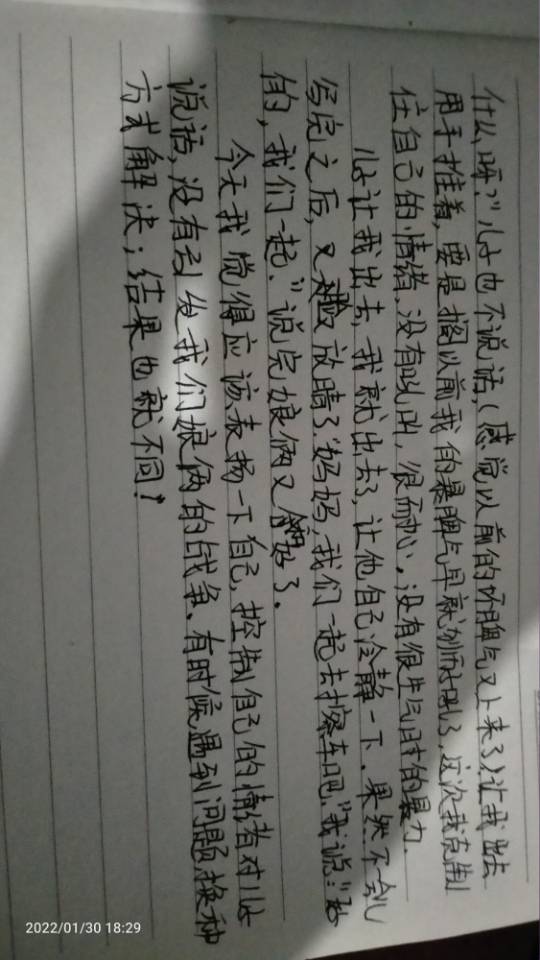 什么呀?”儿子也不说话,(感觉以前的坏脾气又上来了)让我出去
用手推着,要是搁以前我的暴脾气早就别吼了,这次我克制
住自己的情绪,没有吼叫,很耐心,没有很生气时的暴力.
儿子让我出去,我就出去了,让他自己冷静一下.果然不一会儿
写完之后,又放晴了.“妈妈,我们一起去擦车吧.”我说:“好
的,我们一起.”说完娘俩又和好了.
今天我觉得应该表扬一下自己,控制自己的情绪对儿子
说话,没有引发我们娘俩的战争.有时候遇到问题换种
方式解决;结果也就不同!
2022/01/30 18:29